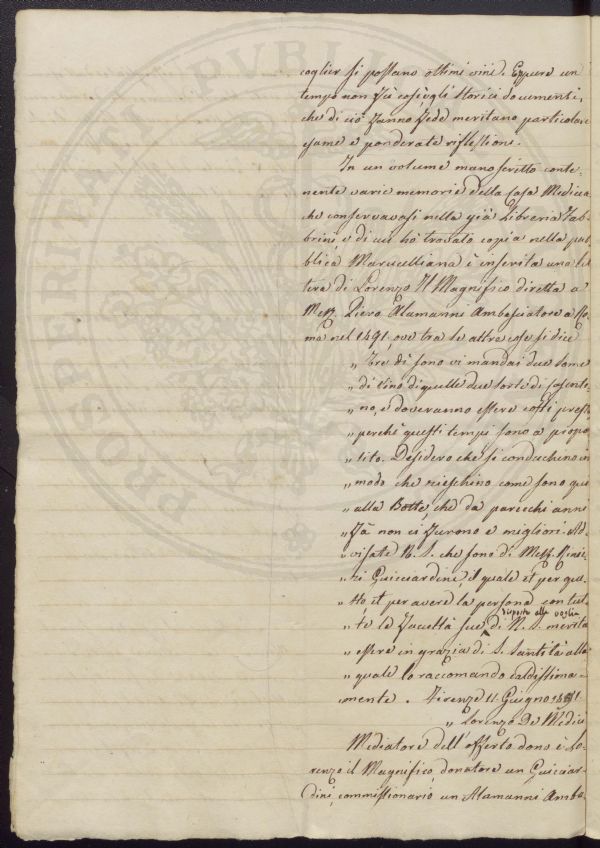 coglier si possano ottimi vini. Eppure un
tempo non fù così, e gli storici documenti,
che di ciò fanno fede meritano particolare
esame e ponderate riflessioni.
In un volume manoscritto conte-
nente varie memorie della Casa Medicea
che conservavasi nella già Libreria Fab-
brini, e di cui hò trovato copia nella pub-
blica Marucelliana è inserita una let-
tera di Lorenzo Il Magnifico diretta a
Mess. Piero Alamanni Ambasciatore a Ro-
ma nel 1491, ove tra le altre cose si dice
„ Tre dì sono vi mandai due some
„ di vino di quelle due sorte di
„ no, e doveranno essere costì presto
„ perchè questi tempi sono a propo-
„ sito. Desidero che si conduchino in
„ modo che rieschino come sono qui
„ alla Botte, che da parecchi anni
„ fà non ci furono e migliori. Av-
„ visate N. S. che sono di Mess. Rinie-
„ ri Guicciardini, il quale et per que-
„ sto, et per avere la persona con tut-
disposta alla voglia
„ te le facultà sue di N. S. merita
„ essere in grazia di S. Santità alla
„ quale lo raccomando caldissima-
„ mente. Firenze 11 Guigno 1491
„ Lorenzo De Medici
Mediatore dell' offerto dono è Lo-
renzo il Magnifico, donatore un Guicciar-
dini, commissionario un Alamanni Amba-
PROSPERITATI PVBLIC